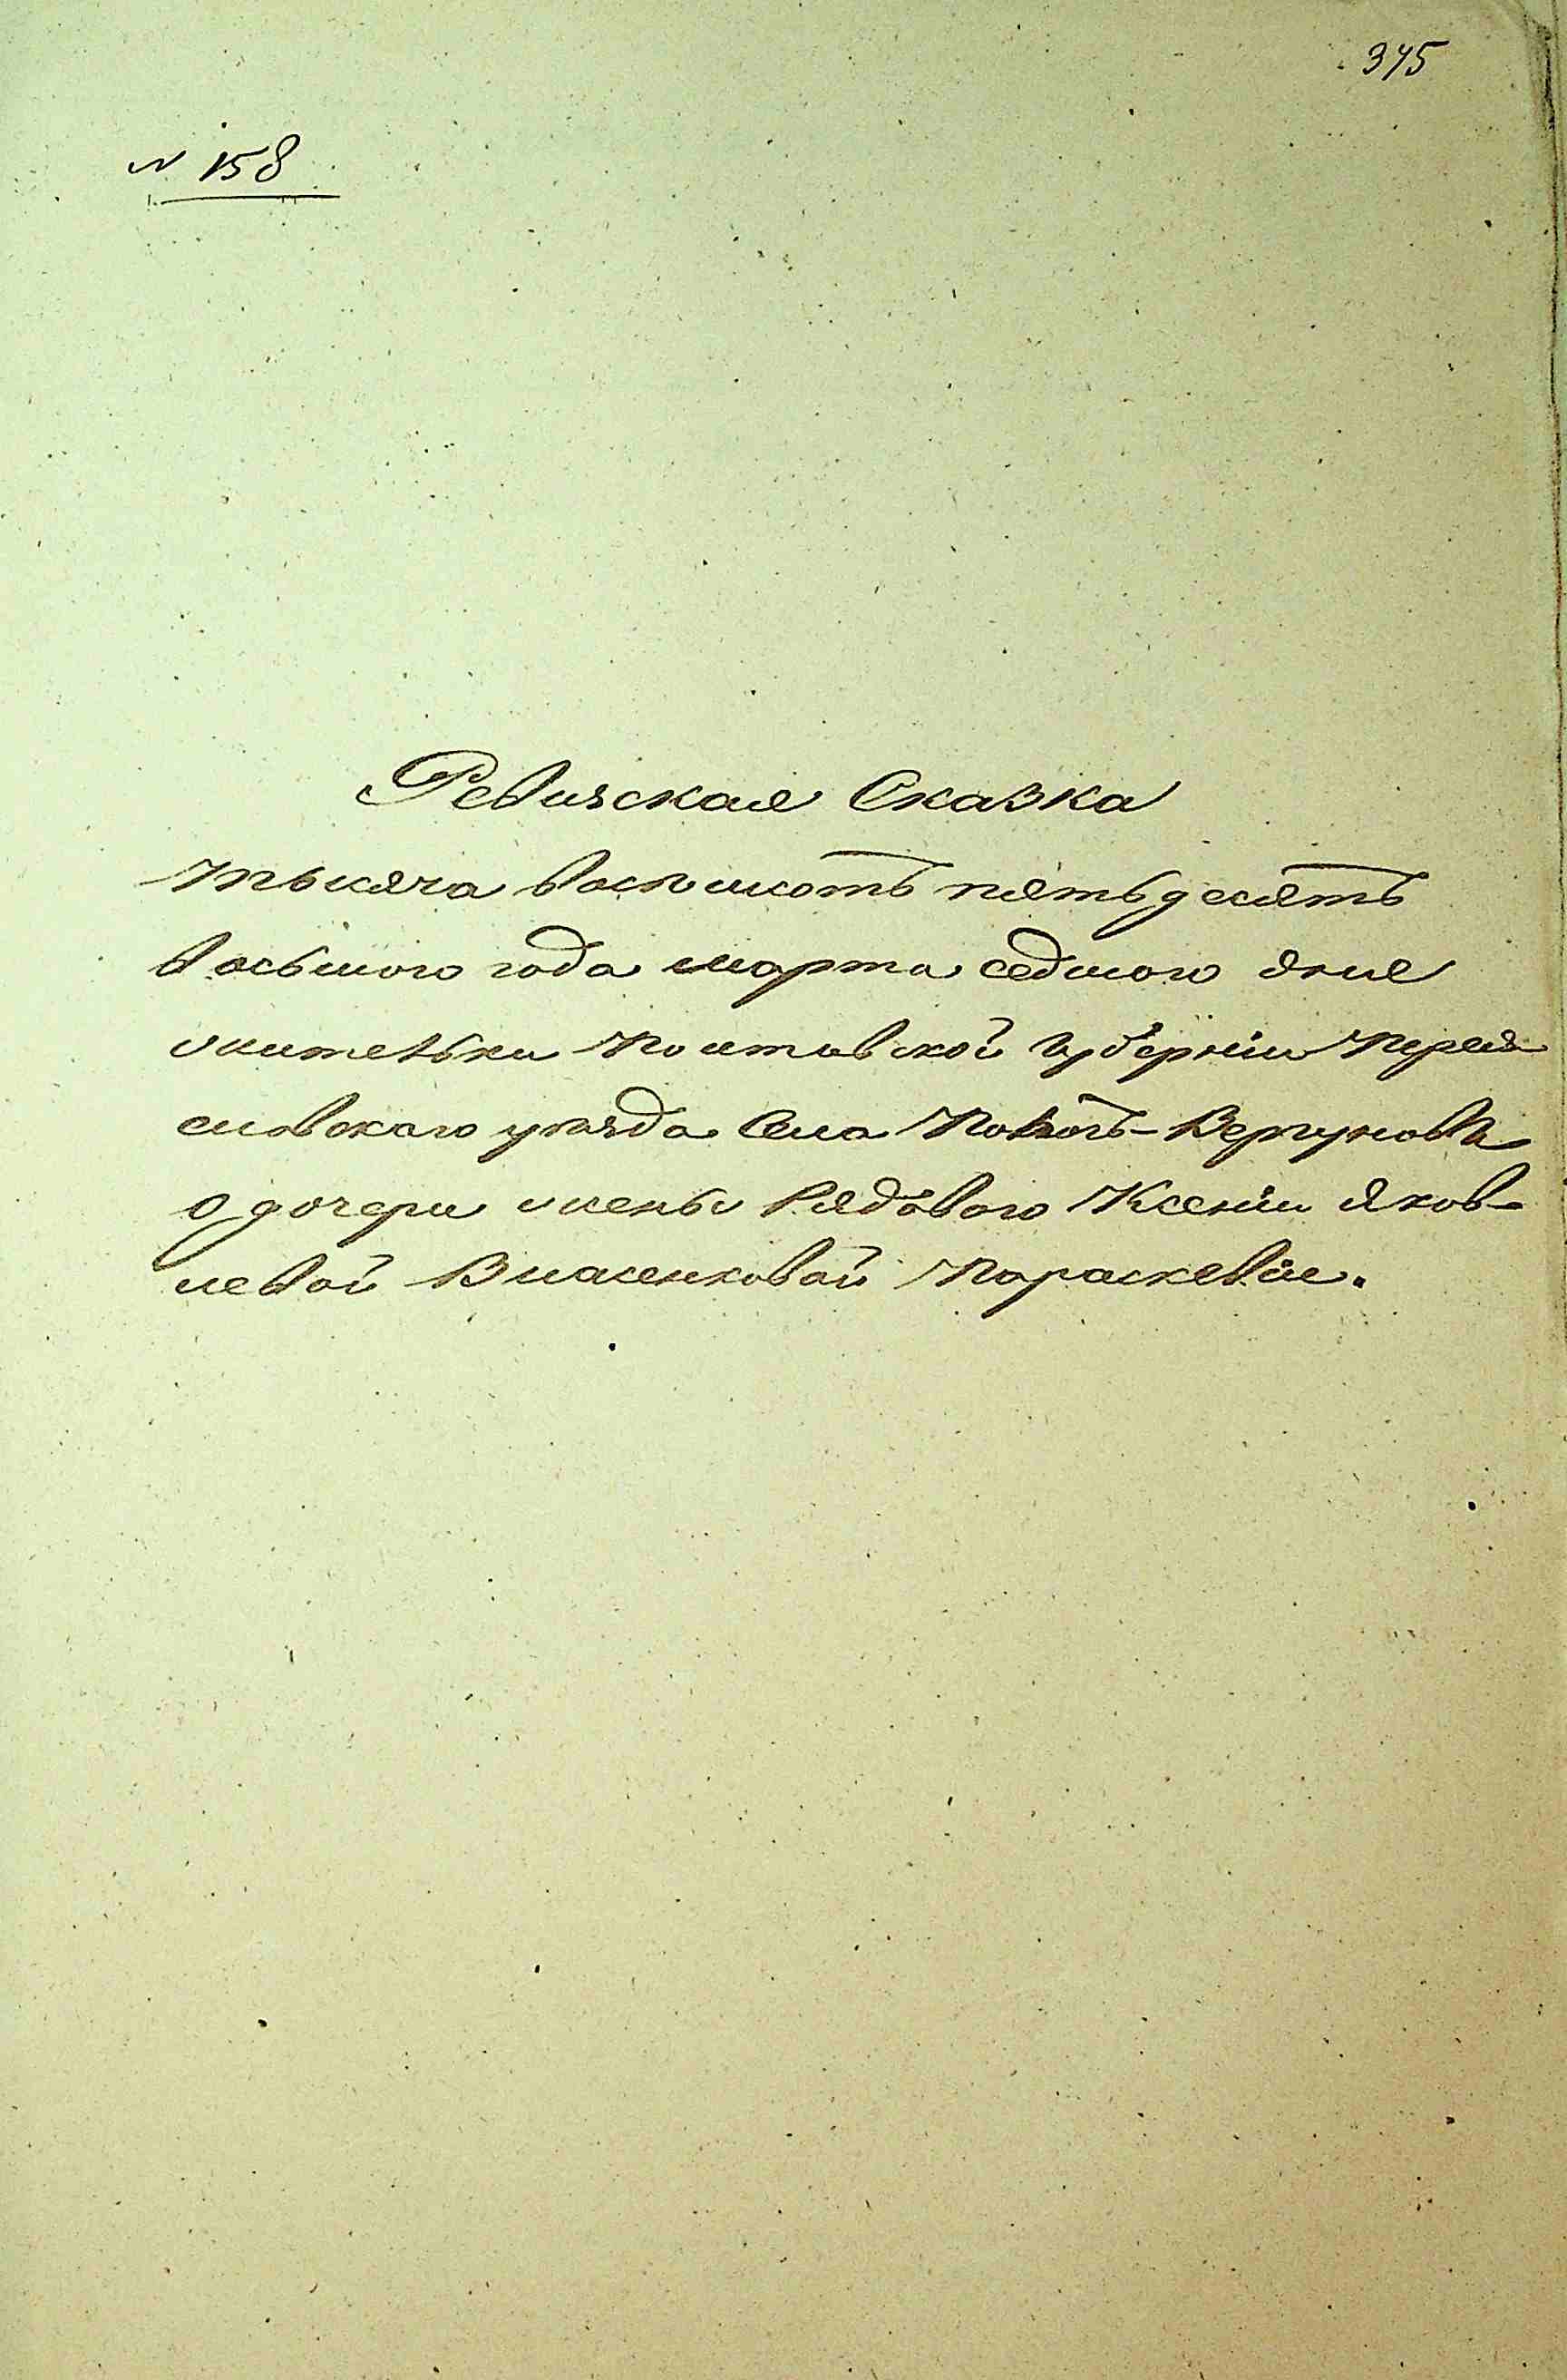 345
N 158
Ревизская Сказка
тысяча восемсотъ пятьдесятъ
восьмого года марта седмого дня
жительки Полтавской губерніи Перея
словского уѣзда Села Войтовъ-Вергуновъ
о дочери жены Рядового Ксеніи Яков-
левой Власенковой Параскевіи.